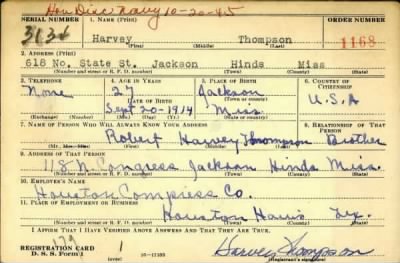 Hon Disc Navy 10-20-45
SERIAL NUMBER 1. NAME (Print) ORDER NUMBER
3134 Harvey Thompson 1168
(First) (Middle) (Last)
2. ADDRESS (Print)
618 No. State St. Jackson Hinds Miss
(Number and street or R. F. D. number) (Town) (County) (State)
3. TELEPHONE 4. AGE IN YEARS 5. PLACE OF BIRTH 6. COUNTRY OF CITIZENSHIP
None 27 Jackson
DATE OF BIRTH (Town or county) U.S.A
Sept 20-1914 Miss.
(Mo.) (Day) (Yr.) (State or country)
7. NAME OF PERSON WHO WILL ALWAYS KNOW YOUR ADDRESS 8. RELATIONSHIP OF THAT PERSON
Robert Harvey Thompson Brother
9. ADDRESS OF THAT PERSON
118 N Congress Jackson Hinds Miss.
(Number and street or R. F. D. number) (Town) (County) (State)
10. EMPLOYER'S NAME
Houston Compress Co.
11. PLACE OF EMPLOYMENT OR BUSINESS
Houston Harris Tex.
(Number and street or R. F. D. number) (Town) (County) (State)
I AFFIRM THAT I HAVE VERIFIED ABOVE ANSWERS AND THAT THEY ARE TRUE.
REGISTRATION CARD
D. S. S. Form 1 (over) Harvey Thompson
(Registrant's signature)